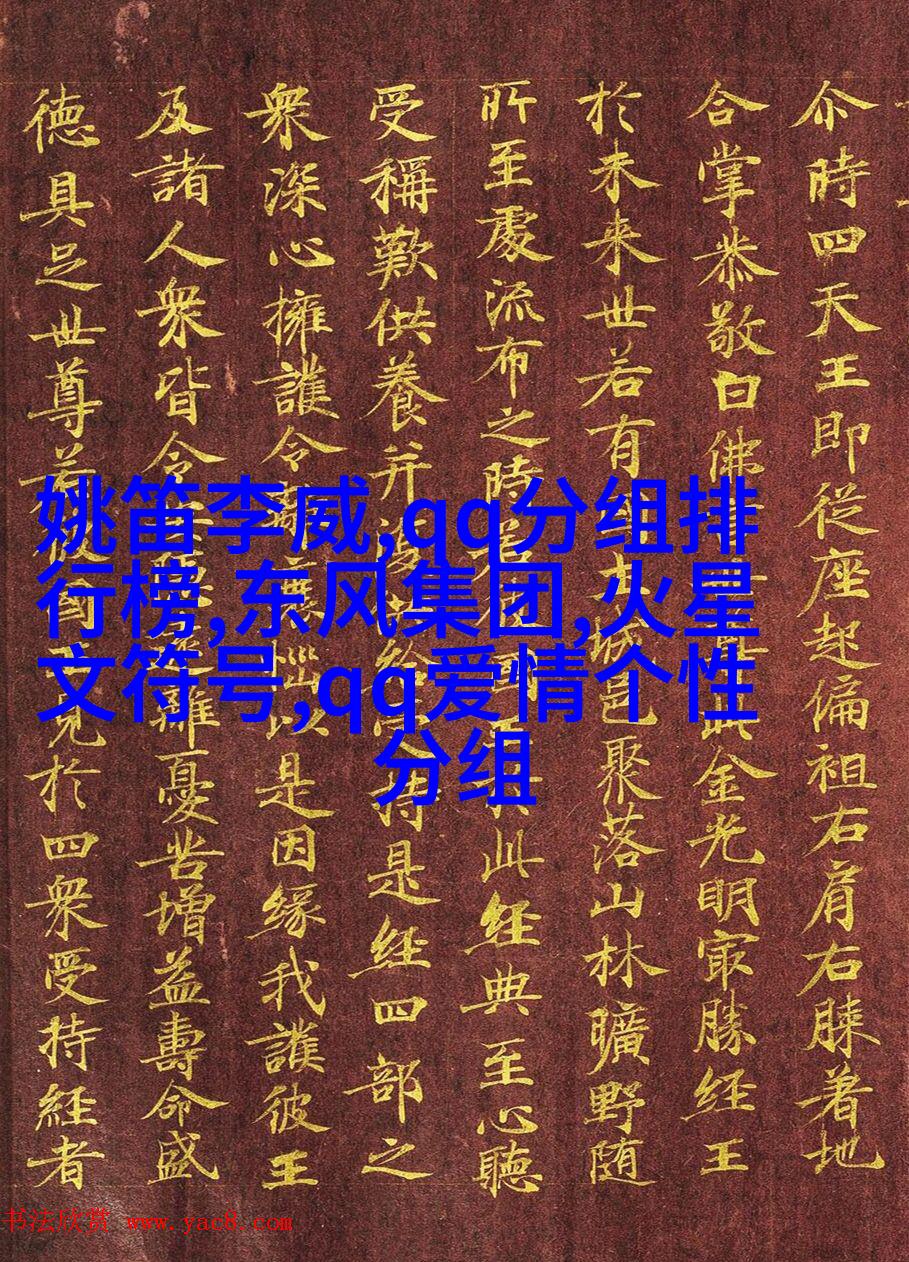 尒時四天王即從座起偏袒右肩右膝著地
合掌恭敬白佛此金光明㝡勝經王
於未来世若有土城邑聚落山林曠野随
所至處流布之時若國王此經典至心聽
受稱歎供養并復給持是經四部之
衆深心擁護令惱以是因緣我護彼王
及諸人衆皆令離憂苦增益壽命威
德具足世尊若彼國見於四衆受持經者
姚笛李威,qq分组排
行榜,东风集团,火星
文符号,qq爱情个性
分组
书法欣赏 www.yac8.com